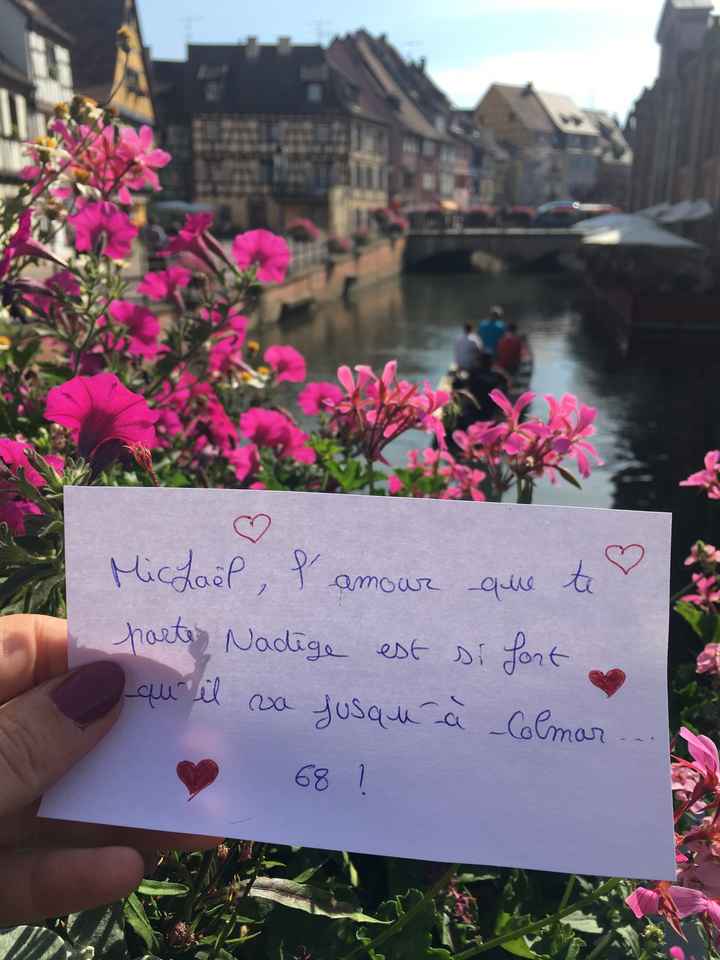 Michaël, l'amour que te
porte Nadège est si fort
qu'il va jusqu'à Colmar...
68 !